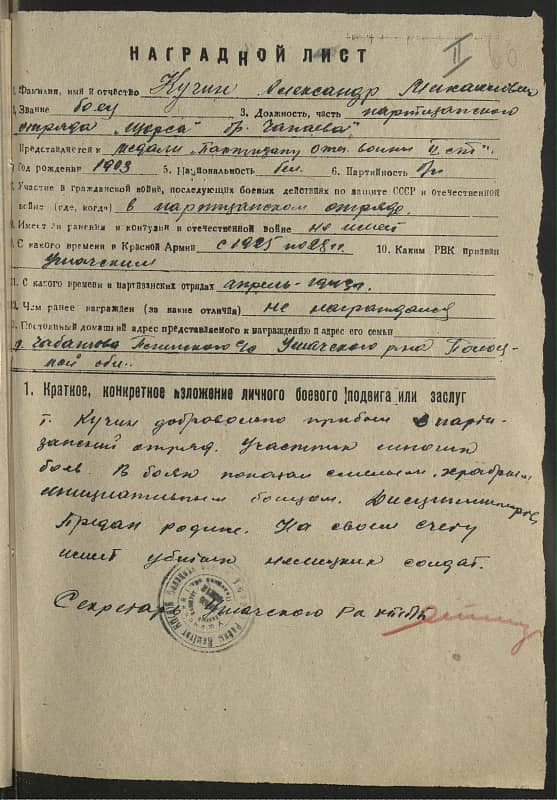 II 60
НАГРАДНОЙ ЛИСТ
1. Фамилия, имя и отчество Кучин Александр Михайлович
2. Звание боец 3. Должность, часть партизанского
отряда „Щорса" бр. Чапаева"
Представляется к медали „Партизану отеч. войны II ст".
Год рождения 1903 5. Национальность бел. 6. Партийность б/п
Участие в гражданской войне, последующих боевых действиях по защите СССР и отечественной
войне (где, когда) в партизанском отряде.
Имеет ли ранения и контузии в отечественной войне не имеет
9. С какого времени в Красной Армии с 1925 по 28 г. 10. Каким РВК призван
Ушачским
11. С какого времени в партизанских отрядах апрель-1943г.
12. Чем ранее награжден (за какие отличия) не награждался
Постоянный домашний адрес представляемого к награждению и адрес его семьи
д. Ушачского р-на Полоц-
кой обл.
1. Краткое, конкретное изложение личного боевого подвига или заслуг
т. Кучин добровольно прибыл в парти-
занский отряд. Участник многих
боев. В боях показал смелым, храбрым
инициативным бойцом. Дисциплинирован,
Предан родине. На своем счету
имеет убитых немецких солдат.
Секретарь Ушачского РК КП(б)Б